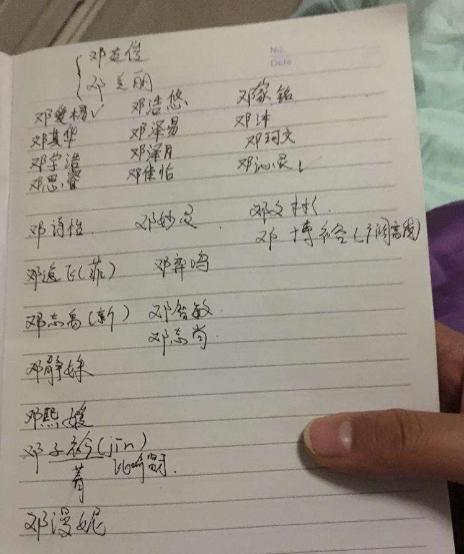 No.
Date
邓英俊
邓美丽
邓爱杨✓ 邓浩悠 邓家铭
邓其华 邓泽易 邓沐
邓宇浩 邓泽月 邓珂文
邓思睿 邓佳怡 邓沁灵✓
邓诗怡 邓妙灵 邓文彬
邓博裕
邓逸飞(菲) 邓羿鸣
邓志高(新) 邓智敏
邓志尚
邓静姝
邓熙媛
邓子衿(jin)
菁
邓漫妮